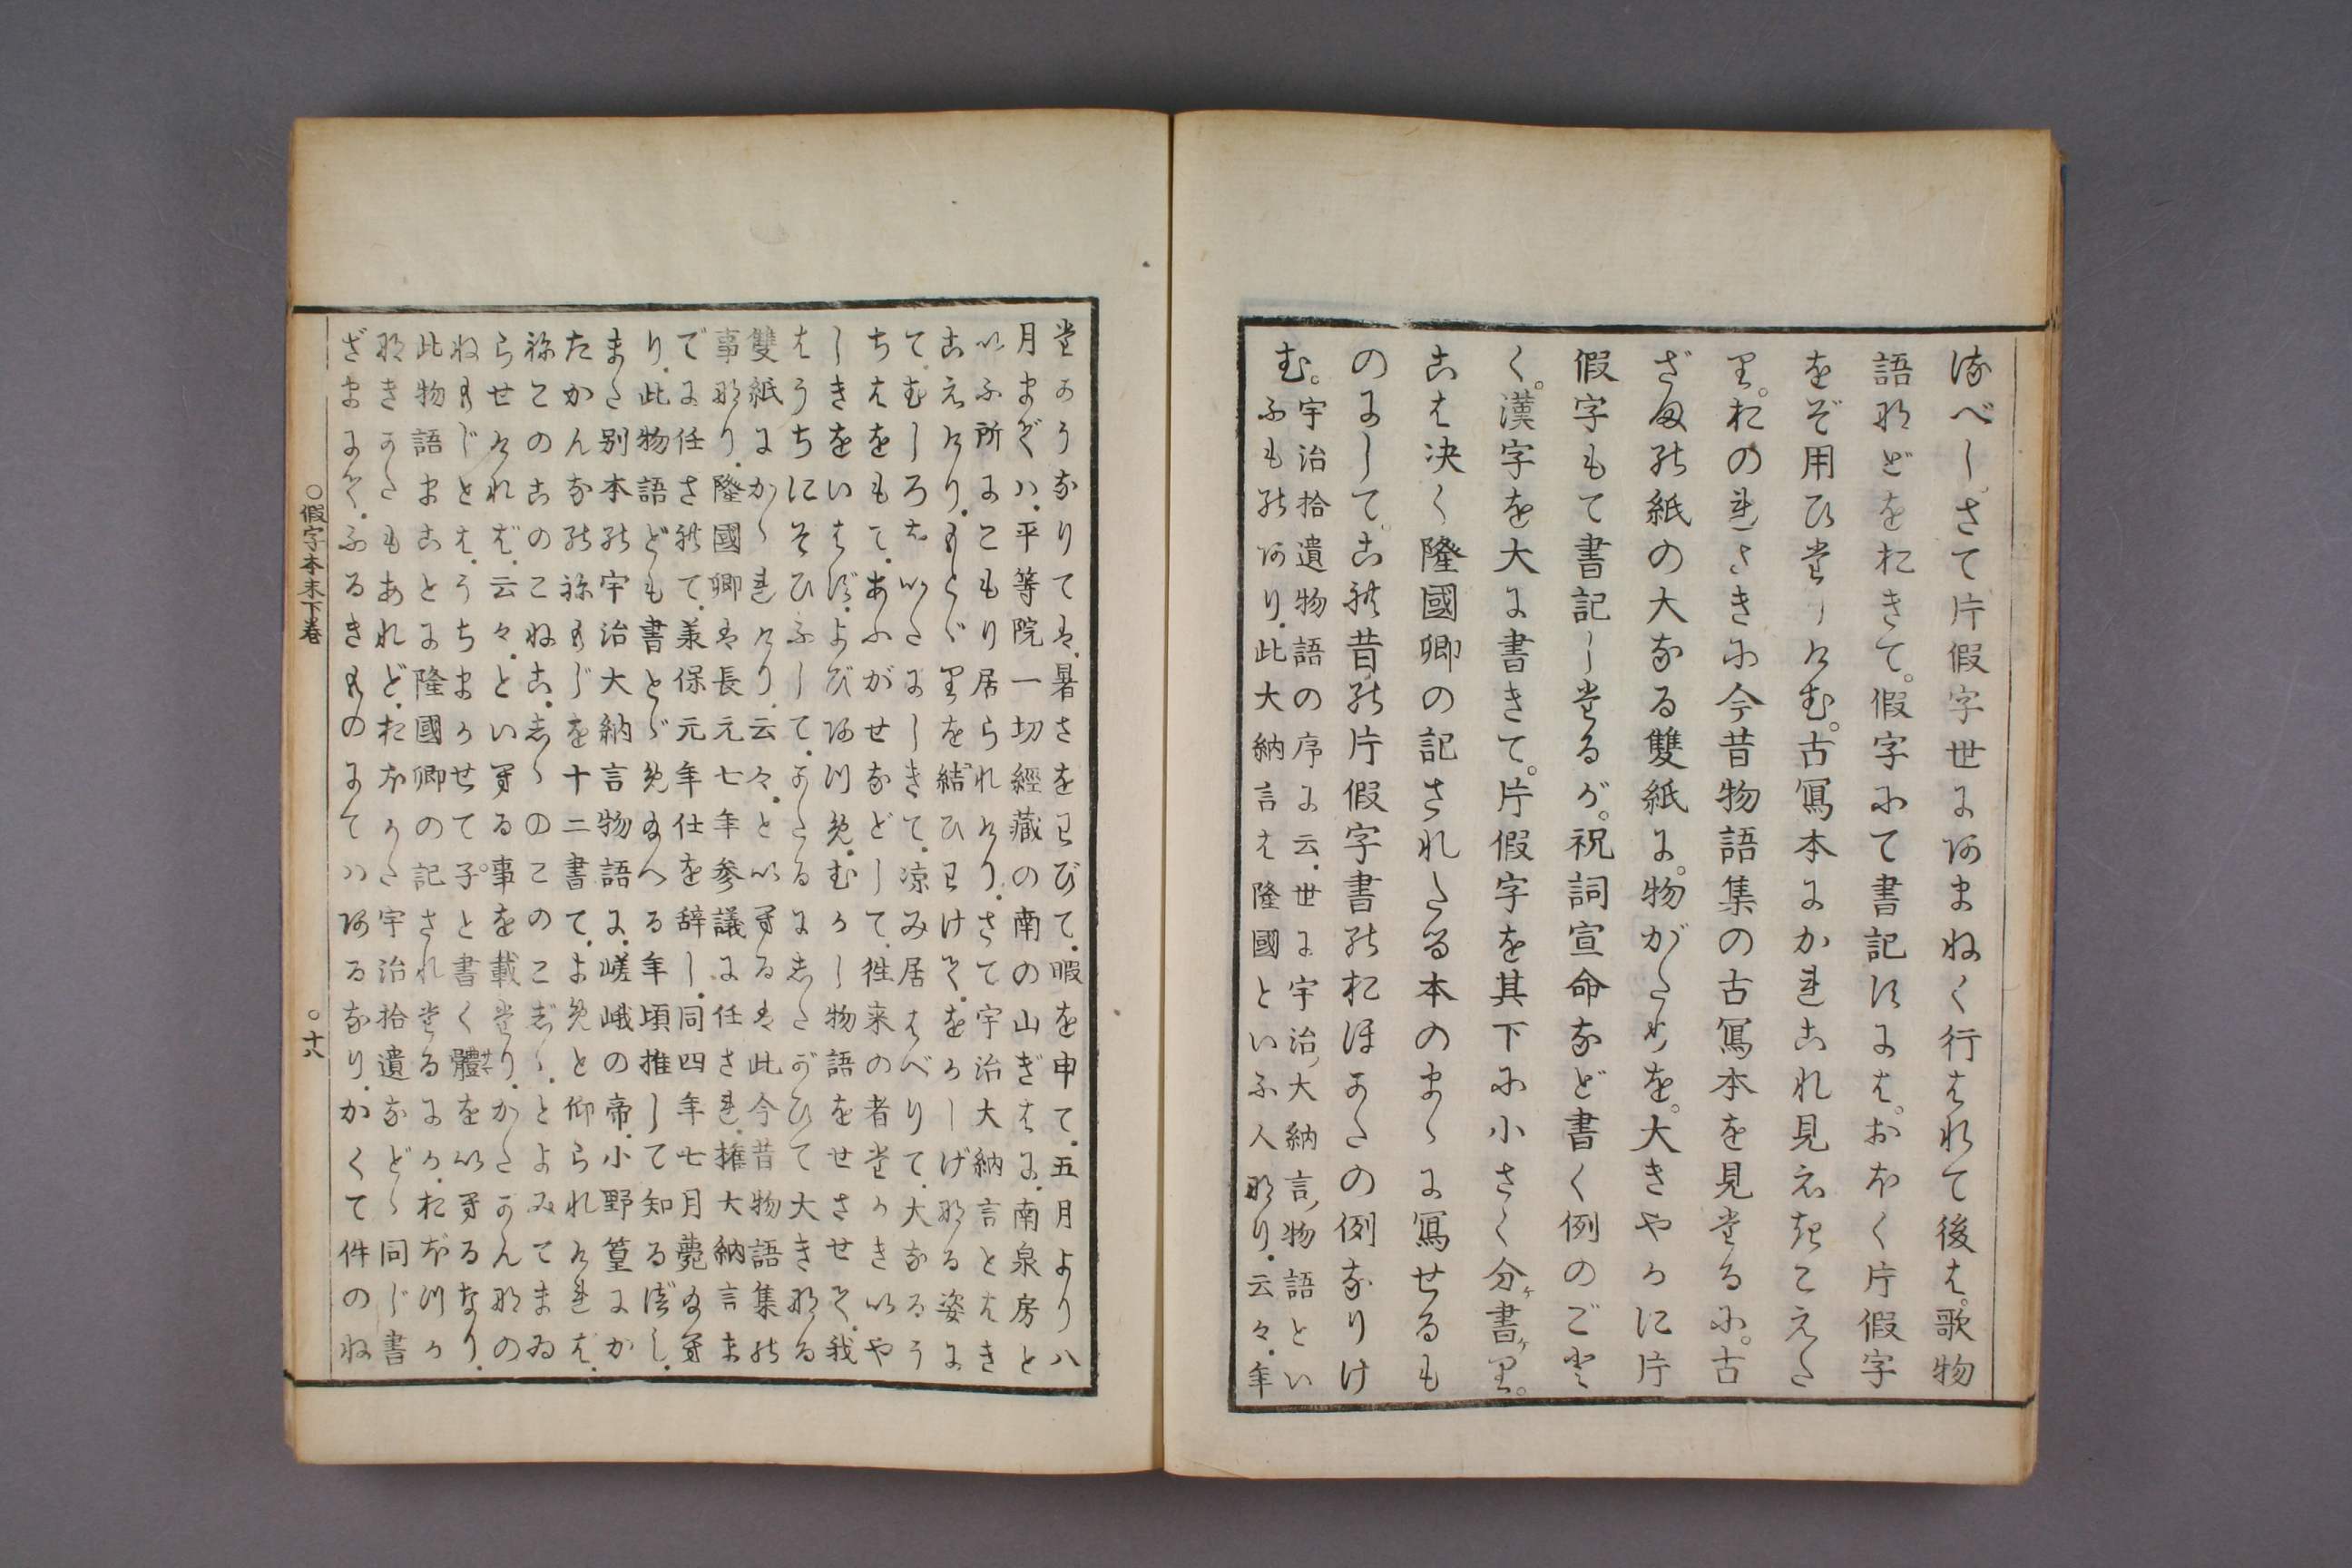 津べしさて片假字世にあまねく行はれて後は。歌物
語などをおきて。假字にて書記すには。おほく片假字
をぞ用ひたりけむ。古寫本にかれこれ見えきこえた
り。おのれさきに今昔物語集の古寫本を見たるに。古
ざまの紙の大なる雙紙に。物がたりを。大きやかに片
假字もて書記したるが。祝詞宣命など書く例のごと
く。漢字を大に書きて。片假字を其下に小さく分ケ書ケり。
こは決く隆國卿の記されたる本のまゝに寫せるも
のにして。これ昔の片假字書のおほかたの例なりけ
む。
宇治拾遺物語の序に云。世に宇治大納言物語とい
ふものあり。此大納言は隆國といふ人なり。云々。年
たかうなりては。暑さをわびて。暇を申て。五月より八
月まぞハ。平等院一切經藏の南の山ぎはに。南泉房と
いふ所にこもり居られけり。さて宇治大納言とはき
こえけり。もとゞりを結ひわけて。をかしげなる姿に
て。むしろを いたにしきて。凉み居はべりて。大なるう
ちはをもて。あふがせなどして。徃来の者たかきいや
しきをいはず。よびあつめ。むかし物語をせさせて。我
はうちにそひふして。かたるにしたがひて大きなる
雙紙にかゝれけり。云々。といへるは此今昔物語集の
事なり。隆國卿は長元七年参議に任され。權大納言ま
でに任されて。兼保元年仕を辞し。同四年七月薨給へ
り。此物語ども書とゞめ給へる年頃推して知るべし。
また別本の宇治大納言物語に。嵯峨の帝。小野篁にか
たかんなのねもじを十二書て。よめと仰られければ。
ねこのこのこねこ。しゝのこのこじゝ。とよみてまゐ
らせければ。云々。といへる事を載たり。かたかんなの
ねもじとは。うちまかせて子。と書く體サマをいへるなり。
此物語まことに隆國卿の記されたるにか。おぼつか
なきかたもあれど。おほかた宇治拾遺などゝ同じ書
ざまにて。ふるきものにてハあるなり。かくて件のね
○假字本末下巻　○十八